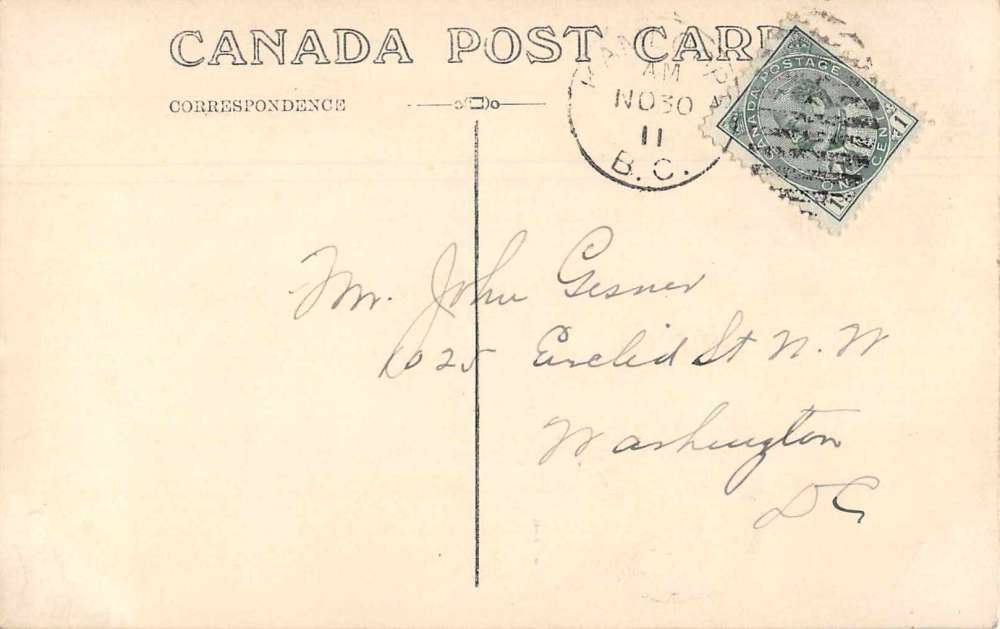 CANADA POST CARD
CORRESPONDENCE
AM
NO 30
11
B.C.
CANADA POSTAGE
ONE CENT
1
1
Mr. John Gesner
1025 Euclid St N.W
Washington
DC